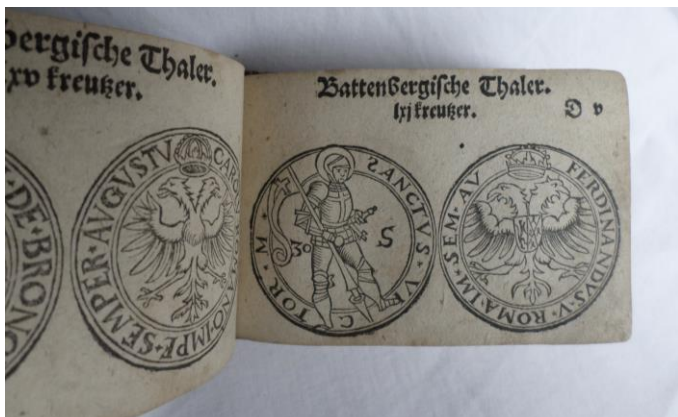 bergische Thaler.
lxv kreutzer.
DE BRONC
CAROL ANO IMPE SEMPER AUGUSTU
Battenbergische Thaler.
lxj kreutzer.
G v
SANCTVS VIC TOR M
30 S
FERDINANDVS V ROMA IM SEM AV